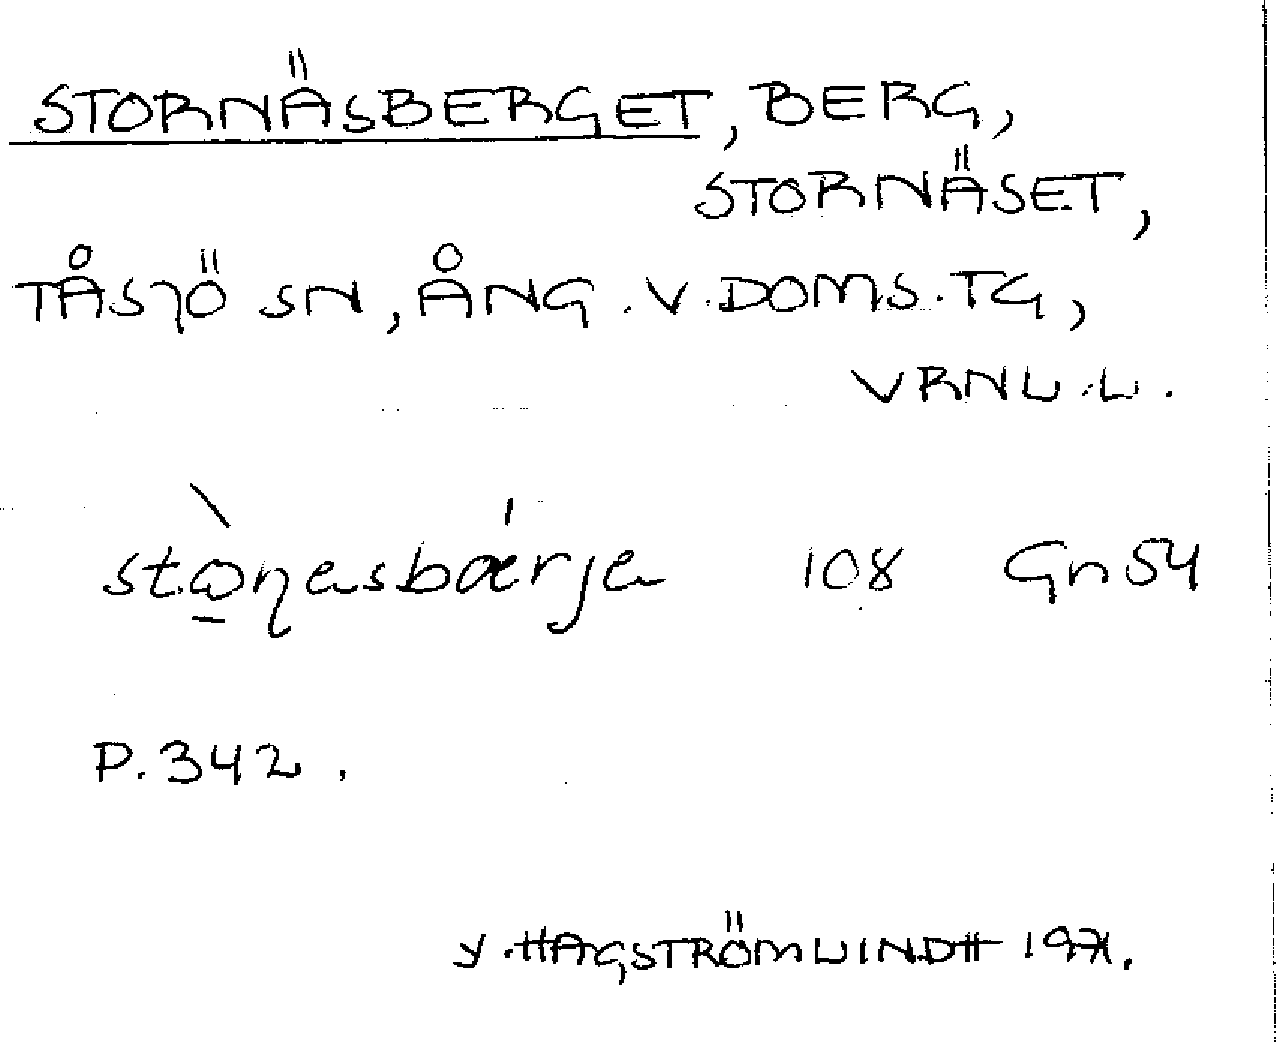 STORNÄSBERGET, BERG,
STORNÄSET,
TÅSJÖ SN, ÅNG. V. DOMS. TG,
VRNL. L.
108 Gn 54
P. 342.
Y. HAGSTRÖM LINDH 1971.